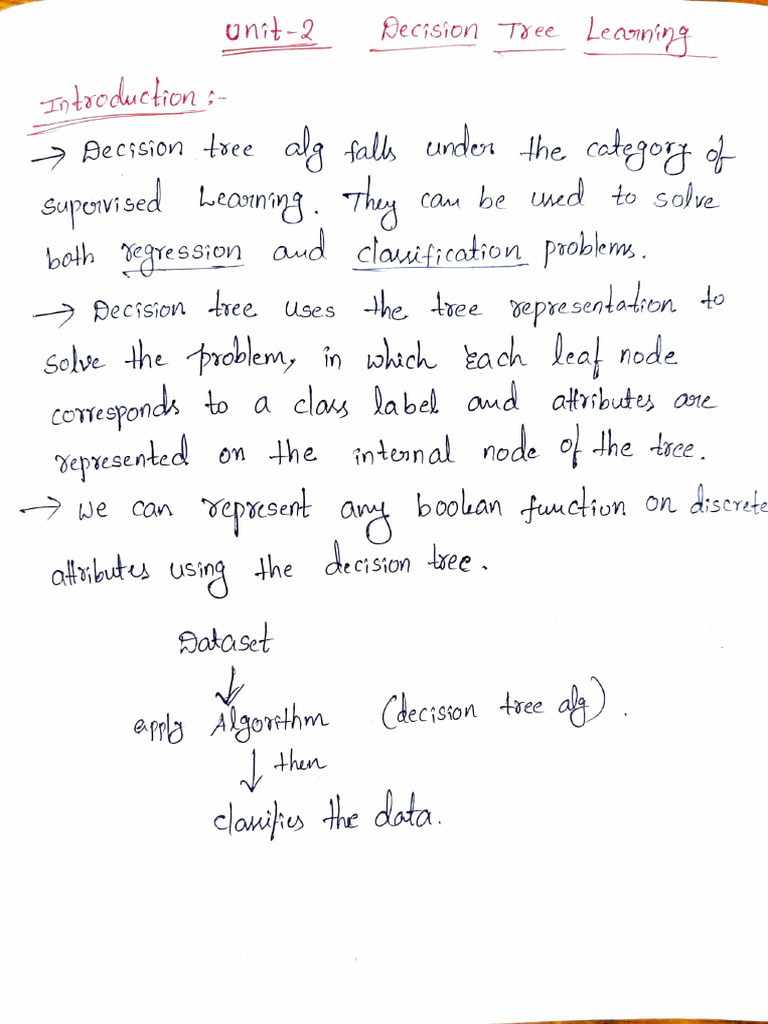 Unit-2 Decision Tree Learning
Introduction :-
→ Decision tree alg falls under the category of
supervised Learning. They can be used to solve
both regression and classification problems.
→ Decision tree uses the tree representation to
solve the problem, in which Each leaf node
corresponds to a class label and attributes are
represented on the internal node of the tree.
→ We can represent any boolean function on discrete
attributes using the decision tree.
Dataset
↓
apply Algorithm (decision tree alg).
↓ then
classifies the data.